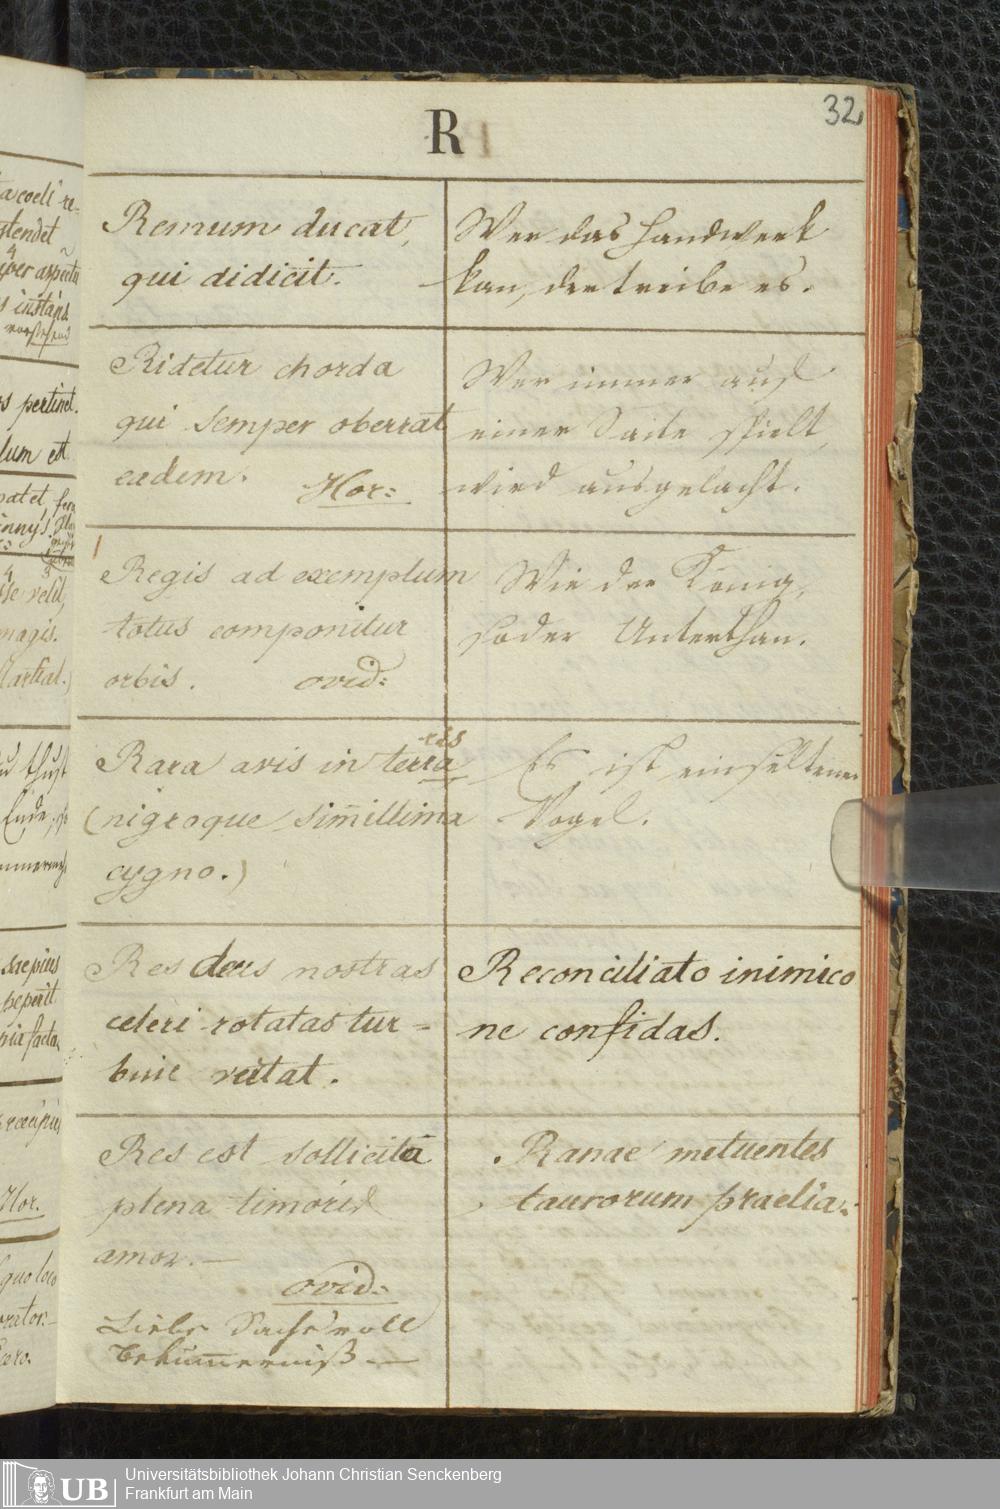 32
R
Remum ducat,
qui didicit.
Wer das Handwerk
kan, der treibe es.
Ridetur chorda
qui semper oberrat
eadem. Hor:
Wer immer auf
einer Saite spielt,
wird ausgelacht.
Regis ad exemplum
totus componitur
orbis. ovid:
Wie der König,
so der Unterthan.
ris
Rara avis in terra
(nigroque sim̄illima
cygno.)
Es ist ein seltener
Vogel.
Res deus nostras
celeri rotatas tur-
bine
Reconciliato inimico
ne confidas.
Res est solliciti
plena timoris
amor.—
ovid:
Liebe Sache voll
Beküm̄erniß.—
Ranae metuentes
taurorum praelia.
a coeli re-
stendet
per
instans
s pertinet.
lum est
patet,
velit,
magis.
Martial.)
du thust
Ende,
saepius
peperit
facta.
Hor.
quo loco
Universitätsbibliothek Johann Christian Senckenberg
Frankfurt am Main
UB